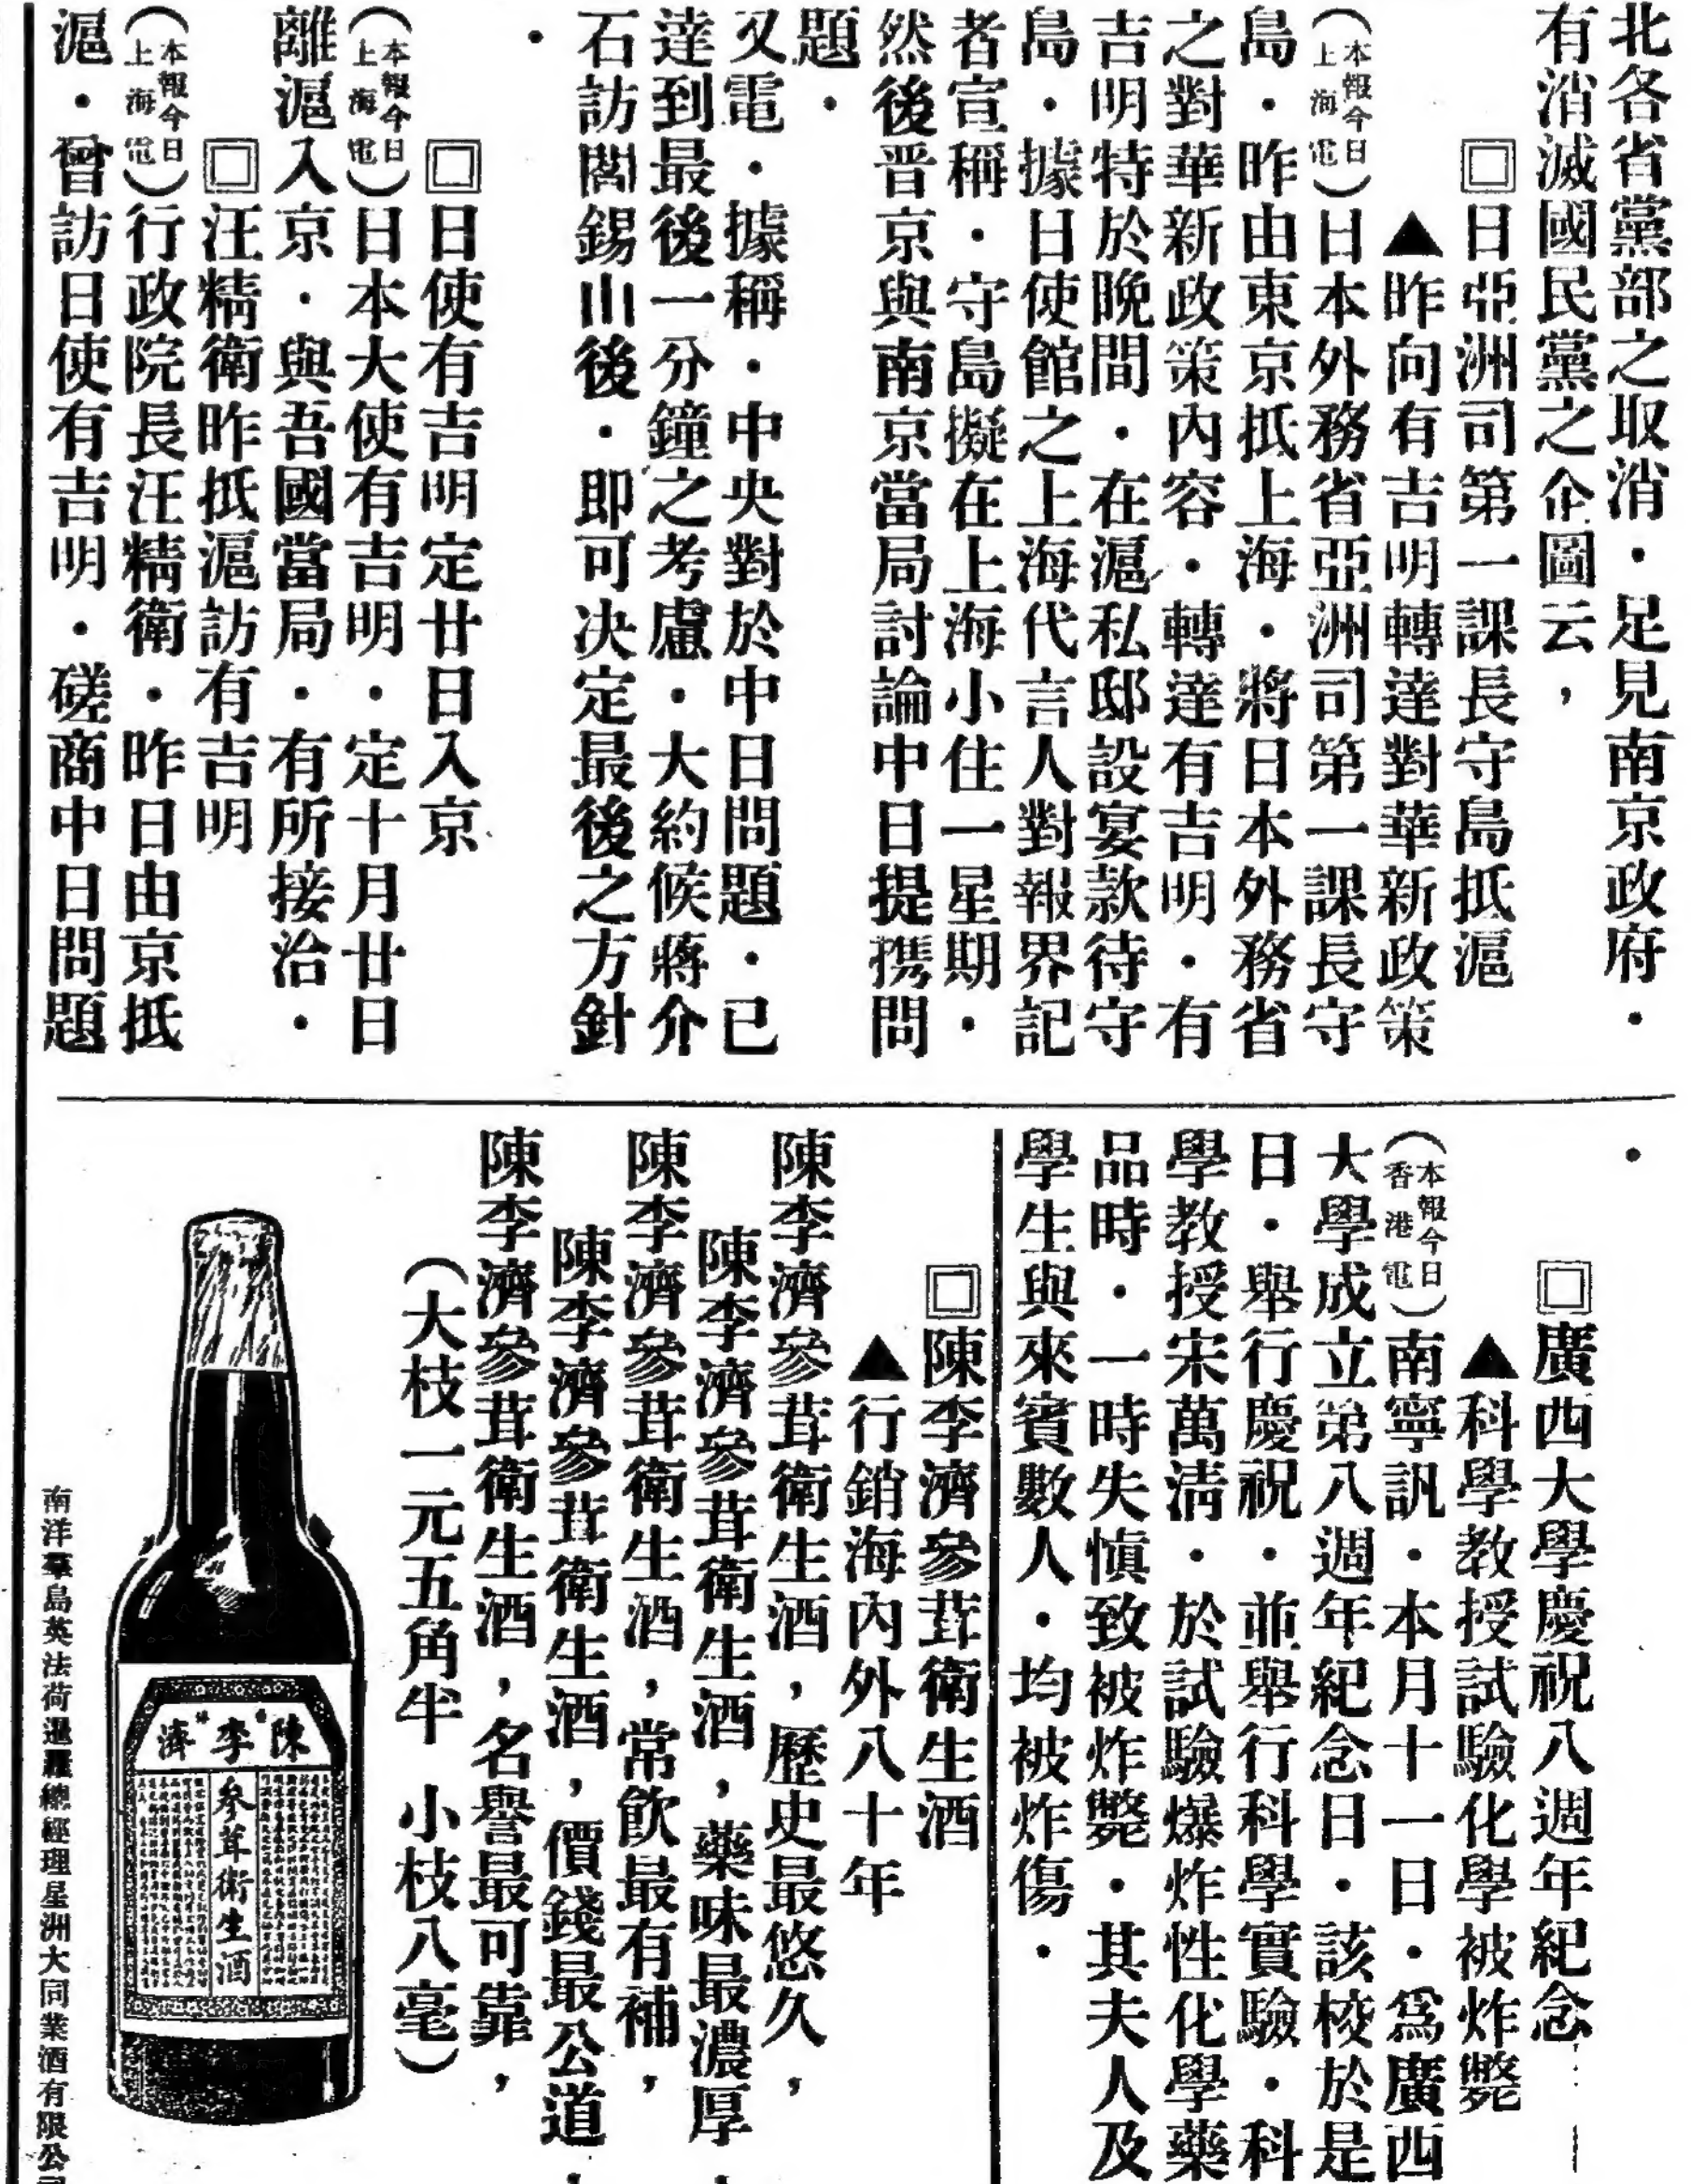 北各省黨部之取消・足見南京政府・
有消滅國民黨之企圖云，
回日亞洲司第一課長守島抵滬
▲昨向有吉明轉達對華新政策
（本報今日上海電）日本外務省亞洲司第一課長守
島・昨由東京抵上海・將日本外務省
之對華新政策內容・轉達有吉明・有
吉明特於晚間・在滬私邸設宴款待守
島・據日使館之上海代言人對報界記
者宣稱・守島擬在上海小住一星期・
然後晋京與南京當局討論中日提携問
題・
又電・據稱・中央對於中日問題・已
達到最後一分鐘之考慮・大約候蔣介
石訪閻錫山後・即可决定最後之方針
・
回日使有吉明定廿日入京
（本報今日上海電）日本大使有吉明・定十月廿日
離滬入京・與吾國當局・有所接洽・
回汪精衛昨抵滬訪有吉明
（本報今日上海電）行政院長汪精衛・昨日由京抵
滬・曾訪日使有吉明・磋商中日問題
・
回廣西大學慶祝八週年紀念
▲科學教授試驗化學被炸斃
（本報今日香港電）南寧訊・本月十一日・爲廣西
大學成立第八週年紀念日・該校於是
日・舉行慶祝・並舉行科學實驗・科
學教授宋萬淸・於試驗爆炸性化學藥
品時・一時失愼致被炸斃・其夫人及
學生與來賓數人・均被炸傷・
回陳李濟參茸衛生酒
▲行銷海內外八十年
陳李濟參茸衛生酒，歷史最悠久，
陳李濟參茸衛生酒，藥味最濃厚，
陳李濟參茸衛生酒，常飮最有補，
陳李濟參茸衛生酒，價錢最公道，
陳李濟參茸衛生酒，名譽最可靠，
（大枝一元五角半 小枝八毫）
陳李濟
參茸衛生酒
南洋羣島英法荷暹羅總經理星洲大同業酒有限公司